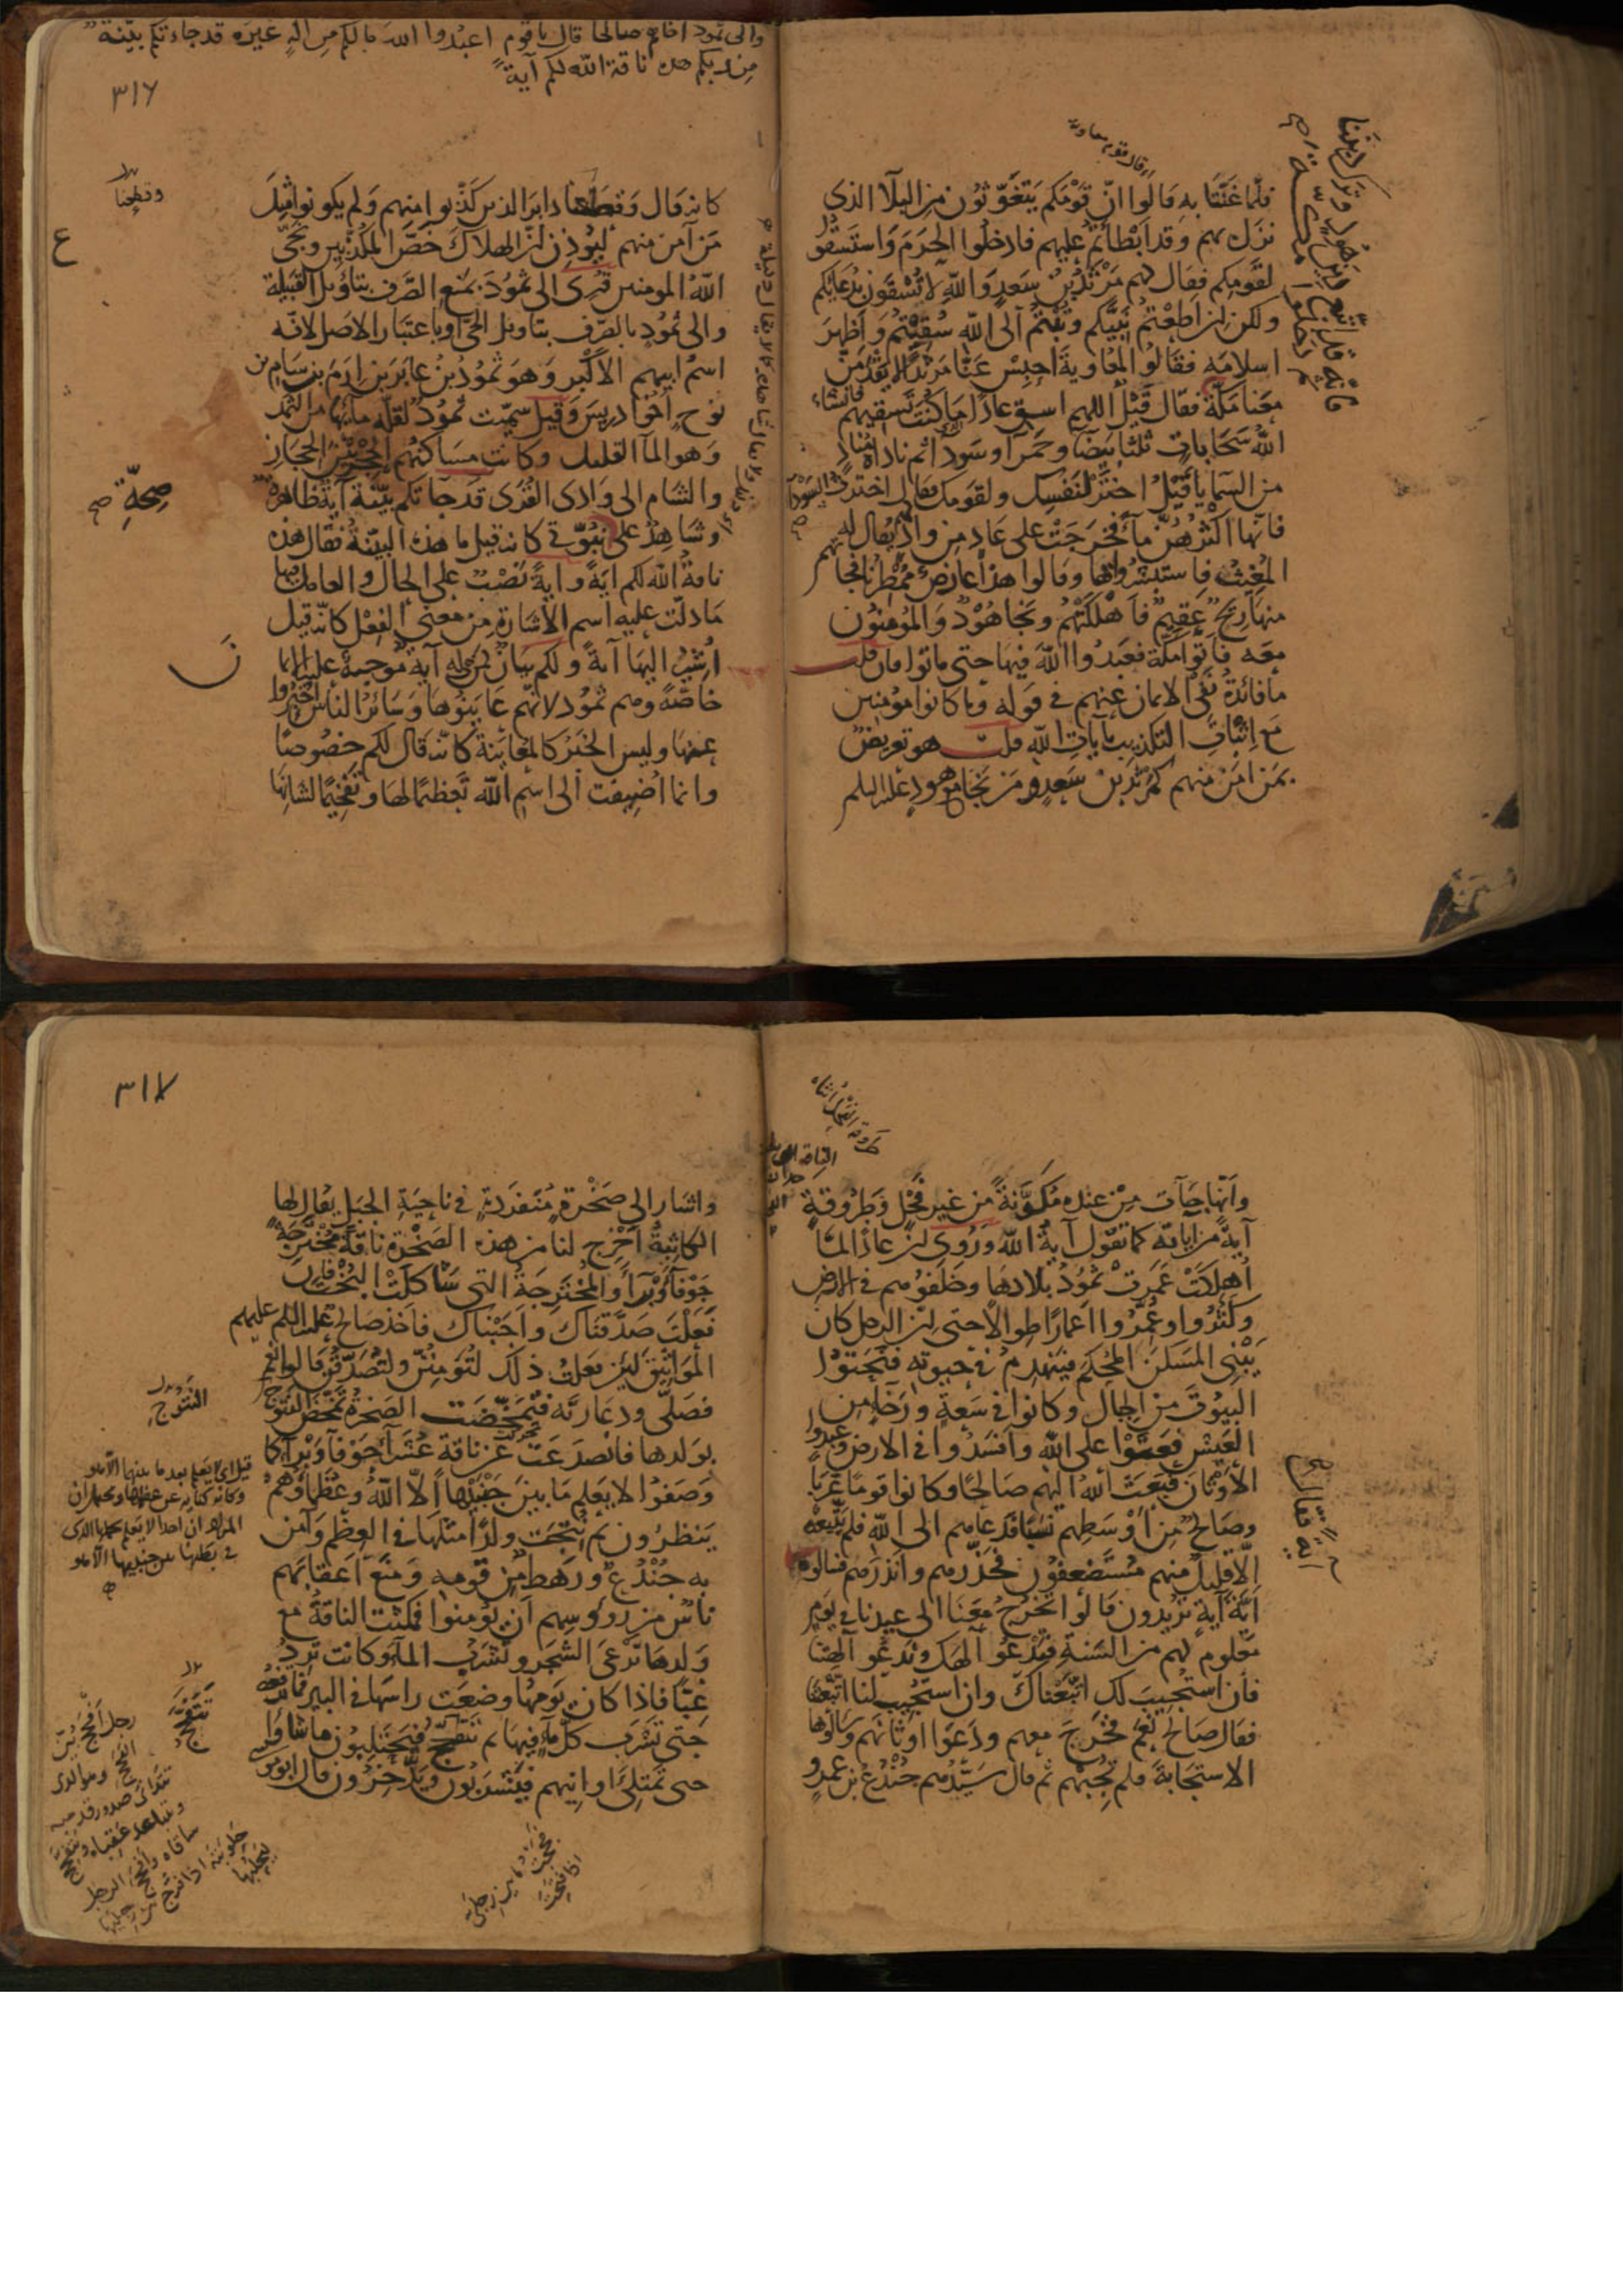 فلما غنتا به قالوا انّ قومكم يتغوّثون من البلآ الذى
نزل بهم وقد ابطأتم عليهم فادخلوا الحرم واستسقوا
لقومكم فقال لهم مرثد بن سعد والله لا تسقون بدعائكم
ولكن ان اطعتم نبيّكم وتبتم الى الله سقيتم واظهر
اسلامه فقالوا لمعاوية احبس عنّا مرثدا لا يقدمنّ
معنا مكّة فقال قيل اللهم اسق عادًا ما كنت تسقيهم فانشاء
الله سحابات ثلثا بيضا وحمرا وسودا ثم ناداه مناد
من السما يا قيل اختر لنفسك ولقومك فقال اخترت السودآ
فانها اكثرهنّ مآء فخرجت على عاد من واد يقال له
المغيث فاستبشروا بها وقالوا هذا عارض ممطرنا فجاءتهم
منها ريح عقيم فاهلكتهم ونجا هود والمؤمنون
معه فاتوا مكة فعبدوا الله فيها حتى ماتوا فان قلت
ما فائدة نفى الايمان عنهم فى قوله وما كانوا مومنين
مع اثبات التكذيب بآيات الله قلت هو تعريض
بمن امن منهم كمرثد بن سعد ومن نجا مع هود عليه السلم
والى ثمود اخاهم صالحا قال يا قوم اعبدوا الله مالكم من اله غيره قد جاءتكم بيّنة
من ربكم هذه ناقة الله لكم آية
٣١٦
وقطعنا
كانه قال وقطعنا دابر الذين كذّبوا منهم ولم يكونوا مثل
من آمن منهم ليوذن انّ الهلاك خصّ المكذّبين ونجّى
الله المومنين قرى والى ثمود بمنع الصّرف بتاويل القبيلة
والى ثمود بالصّرف بتاويل الحىّ او باعتبار الاصل لانّه
اسم ابيهم الاكبر وهو ثمود بن عابر بن ارم بن سام بن
نوح اخو ادريس وقيل سمّيت ثمود لقلّة مائها من الثمد
وهو المآ القليل وكانت مساكنهم الحجر بين الحجاز
والشام الى وادى القرى قد جآتكم بيّنة آية ظاهرة
وشاهد على نبوّتى كانه قيل ما هذه البيّنة فقال هذه
ناقة الله لكم آية وآية نصب على الحال والعامل فيها
ما دلّت عليه اسم الاشارة من معنى الفعل كانّه قيل
اُشير اليها آية ولكم بيان لمن هى له آية موجبة عليه الايمان
خاصّة وهم ثمود لانّهم عاينوها وسائر الناس اخبروا
عنها وليس الخبر كالمعاينة كانّه قال لكم خصوصًا
وانما اضيفت الى اسم الله تعظيمًا لها وتفخيمًا لشانها
صحة صح
وانها جآت من عنده مكوّنة من غير فحل وطروقة
آية من اياته كما تقول آية الله وروى ان عادًا لمّا
اُهلكت عمرت ثمود بلادها وخلفوهم فى الارض
وكثروا وعُمّروا اعمارًا طوالا حتى ان الرجل كان
يبنى المسكن المحكم فينهدم فى حيوته فنحتوا
البيوت من الجبال وكانوا فى سعة ورخآء من
العيش فعتوا على الله وافسدوا فى الارض وعبدوا
الاوثان فبعث الله اليهم صالحًا وكانوا قومًا عربًا
وصالح من اوسطهم نسبًا فدعاهم الى الله فلم يتّبعه
الّا قليل منهم مستضعفون فحذّرهم وانذرهم فسالوه
ايّة آية تريدون قالوا تخرج معنا الى عيدنا فى يوم
معلوم لهم من السّنة فتدعو الهك وندعو آلهتنا
فان استجيب لك اتبعناك وان استجيب لنا اتبعتنا
فقال صالح نعم فخرج معهم ودعوا اوثانهم وسالوها
الاستجابة فلم تجبهم ثم قال سيّدهم جندع بن عمرو
آية فقال صح
٣١٧
واشار الى صخرة منفردة فى ناحية الجبل يقال لها
الكاثبة اخرج لنا من هذه الصخرة ناقة مخترجة
جوفآء وبرآء والمخترجة التى شاكلت البخت فان
فعلت صدّقناك واجبناك فاخذ صالح عليه السلم عليهم
المواثيق لئن فعلت ذلك لتؤمننّ ولتصدّقنّ قالوا نعم
فصلّى ودعا ربّه فتمخّضت الصخرة تمخّض النتوج
بولدها فانصدعت عن ناقة عشرآء جوفآء وبرآء كما
وصفوا لا يعلم ما بين جنبيها الّا الله وعظماؤهم
ينظرون ثم نتجت ولدًا مثلها فى العظم وآمن
به جندع ورهط من قومه ومنع اعقابهم
ناس من رءوسهم ان يؤمنوا فمكثت الناقة مع
ولدها ترعى الشجر وتشرب المآء وكانت ترد
غبًّا فاذا كان يومها وضعت راسها فى البير فما ترفعه
حتى تشرب كلّ ماء فيها ثم تتفحّج فيحتلبون ما شاؤا
حتى تمتلئ اوانيهم فيشربون ويدّخرون قال ابو موسى
النتوج
قيل اى لا يعلم بعد ما بينهما الا الله
وكانه كناية عن عظمها ويحتمل ان
المراد ان احدا لا يعلم حملها الذى
فى بطنها بين جنبيها الا الله
تتفحج